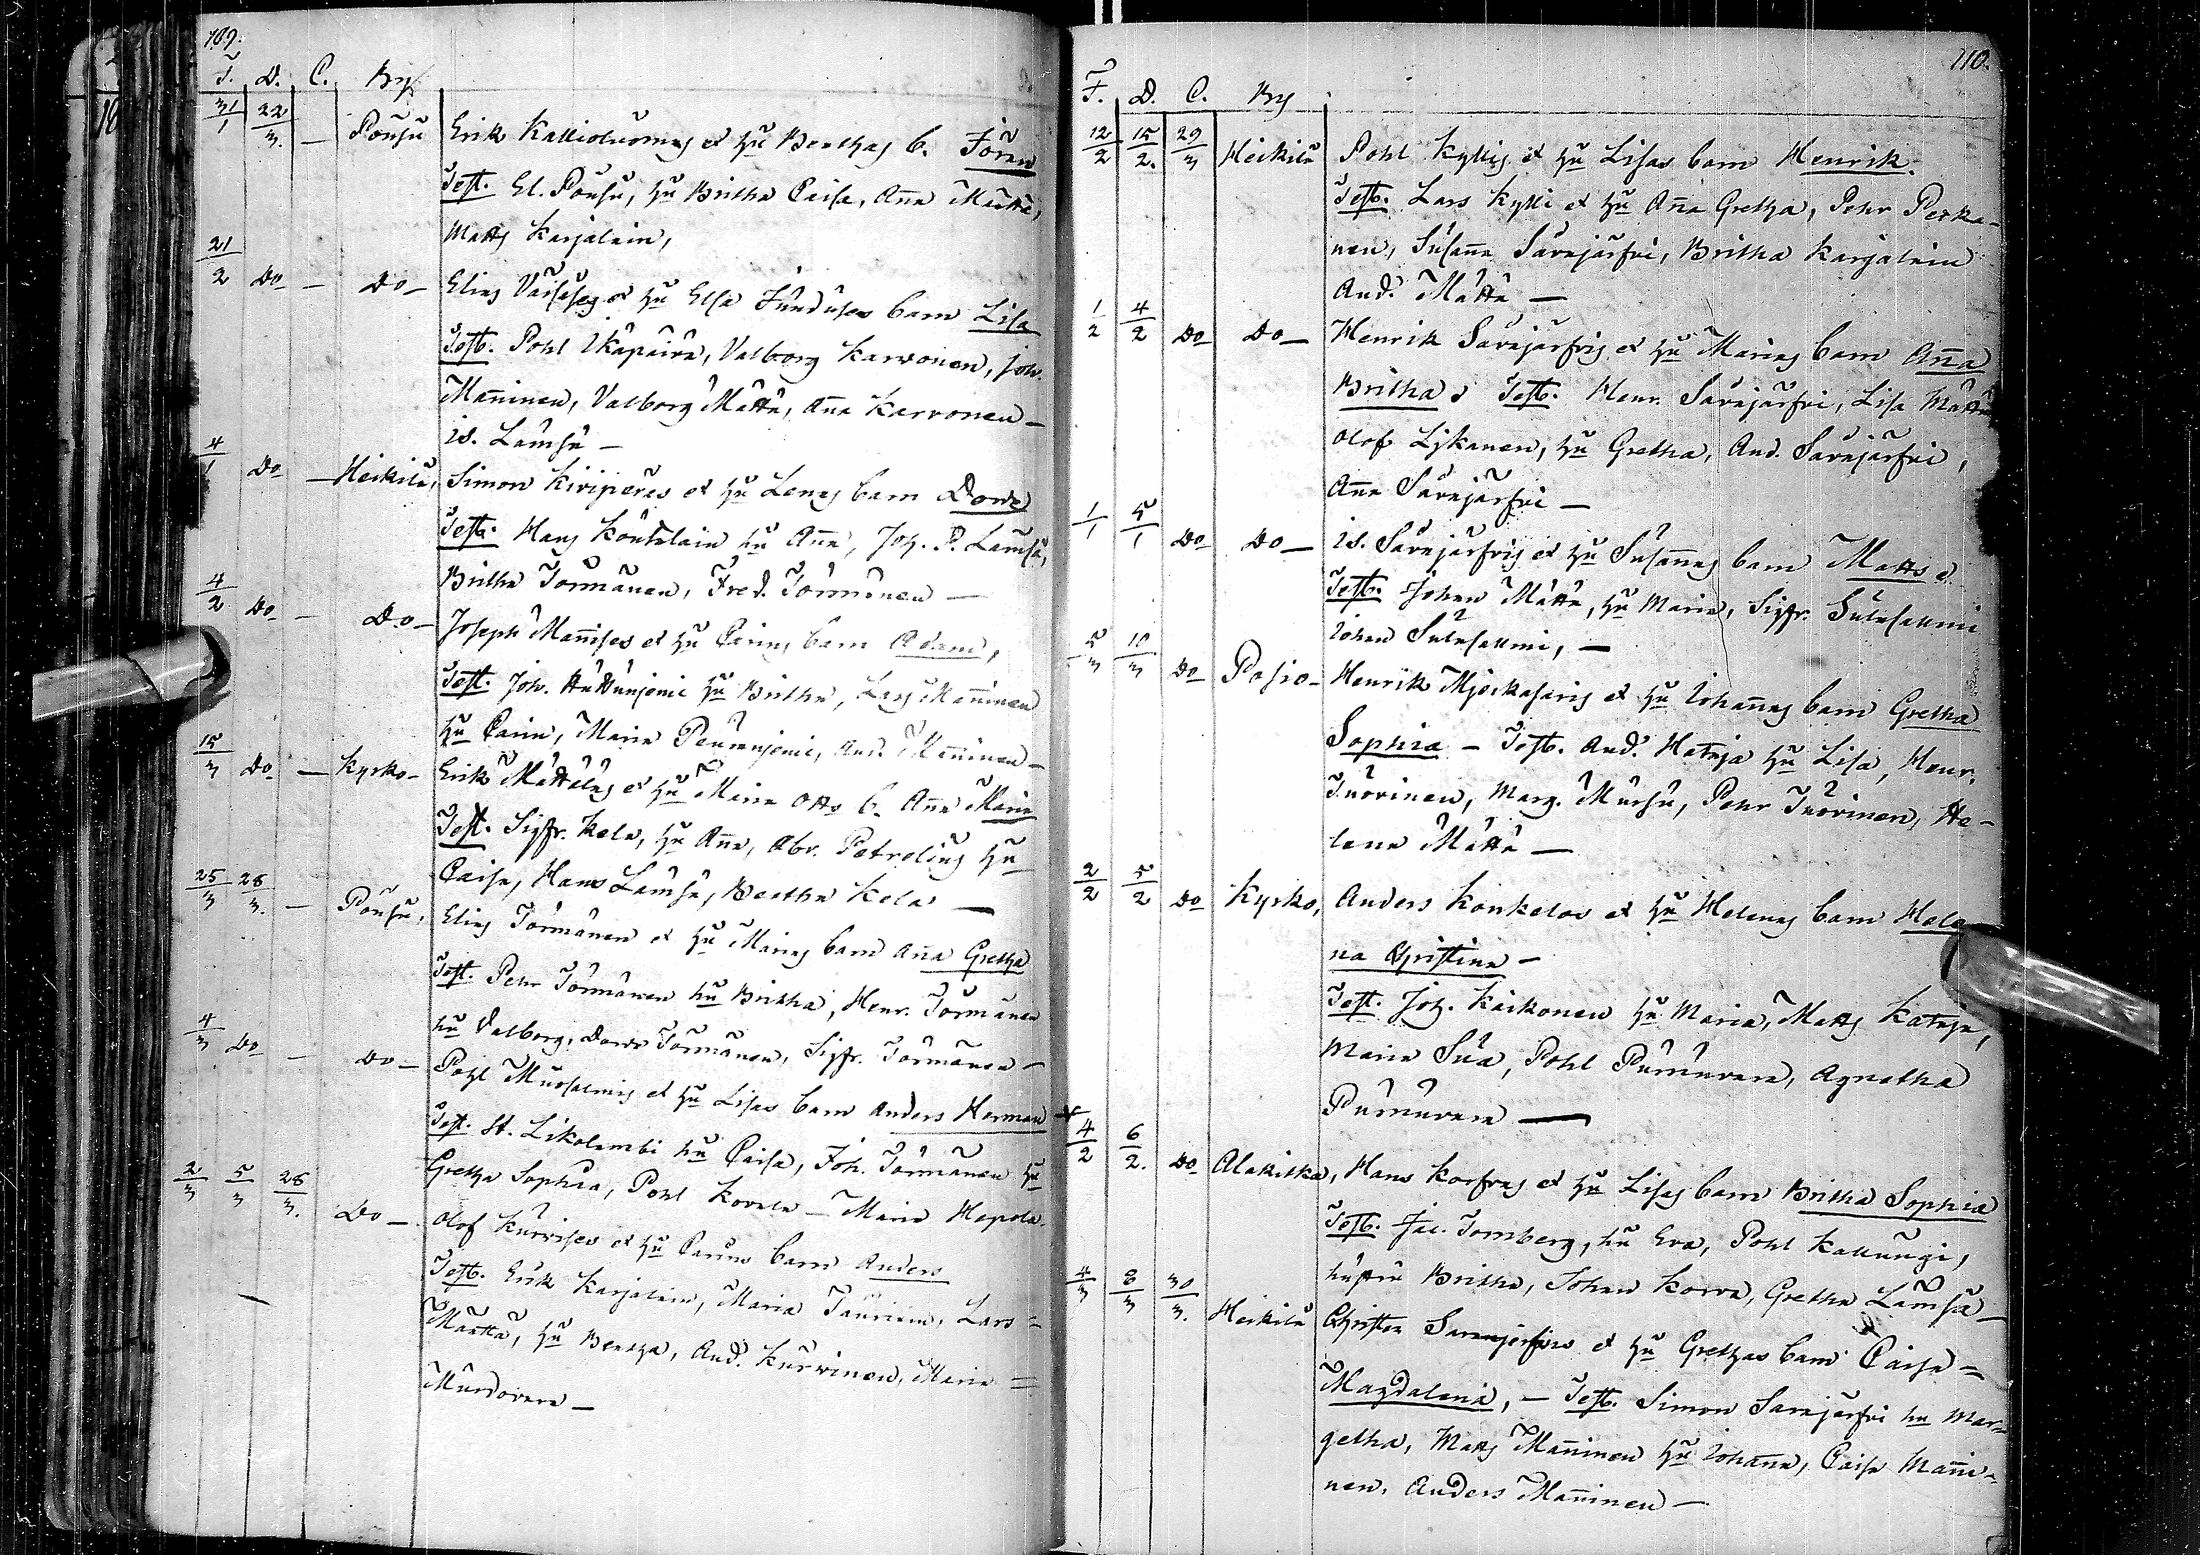 109.
F. D. C. By
31/1 22/3. — Pousu Erik Kalliotuomış et hu Berthas b. Johan
Test. El. Pousu, hu Britha Caisa, Aña Määttä,
Matts Karjalain,
21/2 Do — Do — Elias Väisises et hu Elsa barn Lisa
Test. Pohl Valborg Karvonen, Joh.
Mañinen, Valborg Määttä, Aña Karvonen —
Is. Lämsä —
4/1 Do — Heikilä, Simon Kiripieres et hu Lenas barn Dord
Test. Hans Kontelain hu Aña, Joh. P. Lämsä,
Britha Törmänen, Fred. Törmänen —
4/2 Do — Do — Joseph Mañises et hu Carins barn Adam,
Test. Joh. hu Britha, Lars Mañinen
hu Carin, Maria And. Mañinen —
15/3 Do — Kyrko — Erik Määttäläs et hu Maria Otts b. Aña Maria
Test. Sigfr. Kela, hu Aña, Abr. Petrelius hu
Caisa, Hans Lämsä, Bertha Kela —
25/3 28/3. — Pousu, Elias Törmänen et hu Marias barn Aña Gretha
Test. Pehr Törmänen hu Britha, Henr. Törmänen
hu Valborg, Törmänen, Sigfr. Törmänen —
4/3 Do — Do — Pohl Mursalmis et hu Lisas barn Anders Herman
Test. St. Likolambi hu Caisa, Joh. Törmänen hu
Gretha Sophia, Pohl Korvala — Maria Hepola.
2/3 5/3 28/3. Do — Olof Kurvises et hu Carins barn Anders
Test. Erik Karjalain, Maria Lars =
Määttä, hu Bertha, And. Kurvinen, Maria =
Murdovara —
110.
F. D. C. By
12/2 15/2. 29/3 Heikilä Pohl Kyllis et hu Lisas barn Henrik.
Test. Lars Kylli et hu Aña Gretha, Pehr Perka-
nen, Susaña Särkjärfvi, Britha Karjalain
And. Määttä —
1/2 4/2 Do Do — Henrik Särkjärfvis et hu Marias barn Aña
Britha. Test. Henr. Särkjärfvi, Lisa Määttä
Olof Lykanen, hu Gretha, And. Särkjärfvi,
Aña Särkjärfvi —
1/1 5/1 Do Do — Is. Särkjärfvis et hu Susañas barn Matts.
Test. Johan Määttä, hu Maria, Sigfr. Sulasalmi
Johan Sulasalmi, —
5/3 10/3 Do Posio — Henrik Mjöckasaris et hu Johañas barn Gretha
Sophia — Test. And. Hataja hu Lisa, Henr.
Tuorinen, Marg. Mursu, Pehr Tuorinen, He-
lena Määttä —
2/2 5/2 Do Kyrko, Anders Konkelas et hu Helenas barn Hele
na Christina —
Test. Joh. Käikonen hu Maria, Matts Kataja,
Maria Sua, Pohl Purnuvara, Agnetha
Purnuvara —
4/2 6/2. Do Alakitka, Hans Korfvas et hu Lisas barn Britha Sophia
Test. Jac. Tornberg, hu Eva, Pohl Kallungi,
hustru Britha, Johan Korva, Gretha Lämsä —
4/3 8/3 30/3. Heikilä Christer Särkjärfvis et hu Grethas barn Caisa =
Magdalena, — Test. Simon Särkjärfvi hu Mar=
getha, Matts Mañinen hu Johaña, Caisa Mañi=
nen, Anders Mañinen —